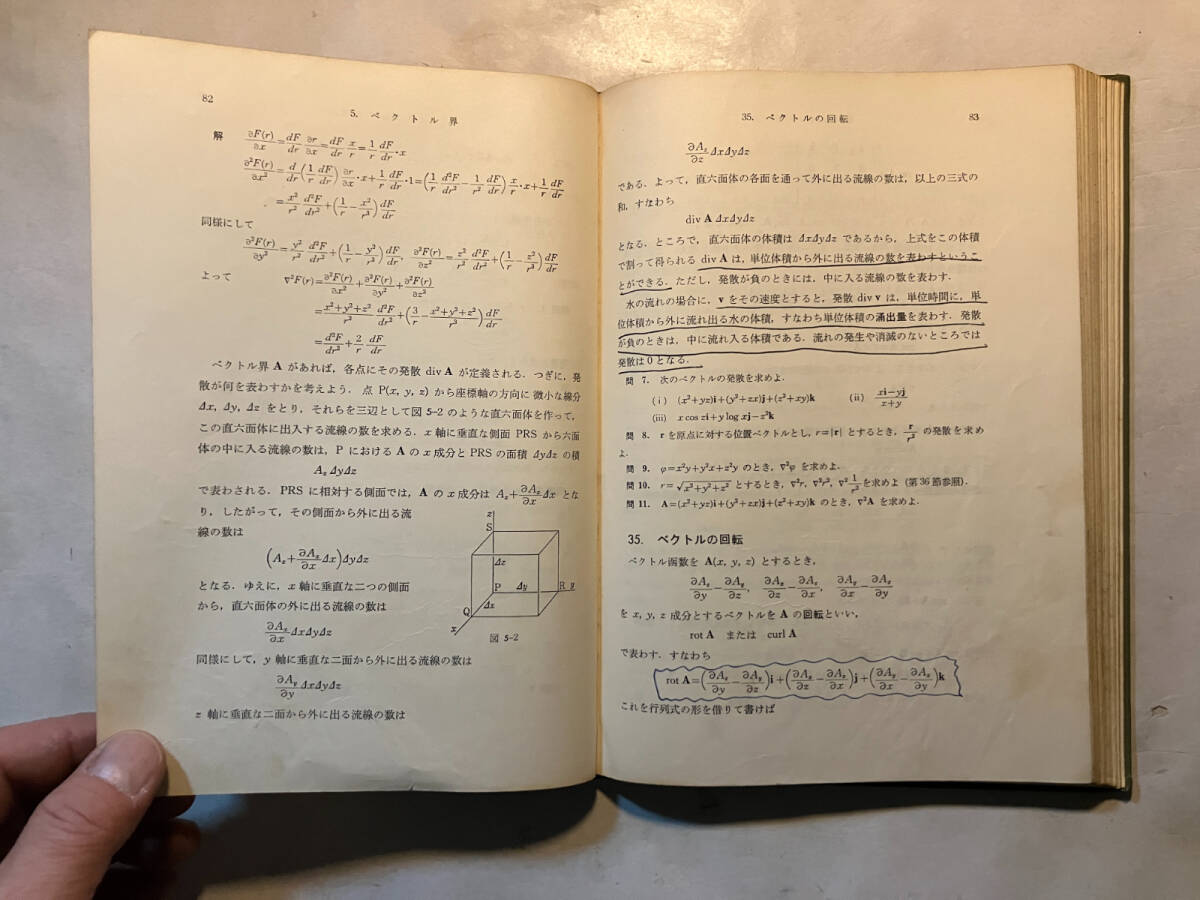 82
5. ベクトル界
解 ∂F(r)/∂x = dF/dr ∂r/∂x = dF/dr x/r = 1/r dF/dr・x
∂²F(r)/∂x² = d/dr(1/r dF/dr) ∂r/∂x・x + 1/r dF/dr・1 = (1/r d²F/dr² − 1/r² dF/dr) x/r・x + 1/r dF/dr
= x²/r² d²F/dr² + (1/r − x²/r³) dF/dr
同様にして
∂²F(r)/∂y² = y²/r² d²F/dr² + (1/r − y²/r³) dF/dr, ∂²F(r)/∂z² = z²/r² d²F/dr² + (1/r − z²/r³) dF/dr
よって ∇²F(r) = ∂²F(r)/∂x² + ∂²F(r)/∂y² + ∂²F(r)/∂z²
= x²+y²+z²/r² d²F/dr² + (3/r − x²+y²+z²/r³) dF/dr
= d²F/dr² + 2/r dF/dr
ベクトル界 A があれば，各点にその発散 div A が定義される．つぎに，発
散が何を表わすかを考えよう．点 P(x, y, z) から座標軸の方向に微小な線分
Δx, Δy, Δz をとり，それらを三辺として図 5-2 のような直六面体を作って，
この直六面体に出入する流線の数を求める．x 軸に垂直な側面 PRS から六面
体の中に入る流線の数は，P における A の x 成分と PRS の面積 ΔyΔz の積
Aₓ ΔyΔz
で表わされる．PRS に相対する側面では，A の x 成分は Aₓ + ∂Aₓ/∂x Δx とな
り，したがって，その側面から外に出る流
線の数は
(Aₓ + ∂Aₓ/∂x Δx) ΔyΔz
となる．ゆえに，x 軸に垂直な二つの側面
から，直六面体の外に出る流線の数は
∂Aₓ/∂x ΔxΔyΔz
z
S
Δz
P Δy R y
Q Δx
x
図 5-2
同様にして，y 軸に垂直な二面から外に出る流線の数は
∂A_y/∂y ΔxΔyΔz
z 軸に垂直な二面から外に出る流線の数は
35. ベクトルの回転 83
∂A_z/∂z ΔxΔyΔz
である．よって，直六面体の各面を通って外に出る流線の数は，以上の三式の
和，すなわち
div A ΔxΔyΔz
となる．ところで，直六面体の体積は ΔxΔyΔz であるから，上式をこの体積
で割って得られる div A は，単位体積から外に出る流線の数を表わすというこ
とができる．ただし，発散が負のときには，中に入る流線の数を表わす．
水の流れの場合に，v をその速度とすると，発散 div v は，単位時間に，単
位体積から外に流れ出る水の体積，すなわち単位体積の涌出量を表わす．発散
が負のときは，中に流れ入る体積である．流れの発生や消滅のないところでは
発散は 0 となる．
問 7. 次のベクトルの発散を求めよ．
(i) (x²+yz)i+(y²+zx)j+(z²+xy)k (ii) xi−yj/x+y
(iii) x cos zi+y log xj−z²k
問 8. r を原点に対する位置ベクトルとし，r=|r| とするとき，r/r³ の発散を求め
よ．
問 9. φ=x²y+y²x+z²y のとき，∇²φ を求めよ．
問 10. r=√x²+y²+z² とするとき，∇²r, ∇²r², ∇² 1/r² を求めよ（第36節参照）．
問 11. A=(x²+yz)i+(y²+zx)j+(z²+xy)k のとき，∇²A を求めよ．
35. ベクトルの回転
ベクトル函数を A(x, y, z) とするとき，
∂A_z/∂y − ∂A_y/∂z, ∂Aₓ/∂z − ∂A_z/∂x, ∂A_y/∂x − ∂Aₓ/∂y
を x, y, z 成分とするベクトルを A の回転といい，
rot A または curl A
で表わす．すなわち
rot A = (∂A_z/∂y − ∂A_y/∂z)i + (∂Aₓ/∂z − ∂A_z/∂x)j + (∂A_y/∂x − ∂Aₓ/∂y)k
これを行列式の形を借りて書けば